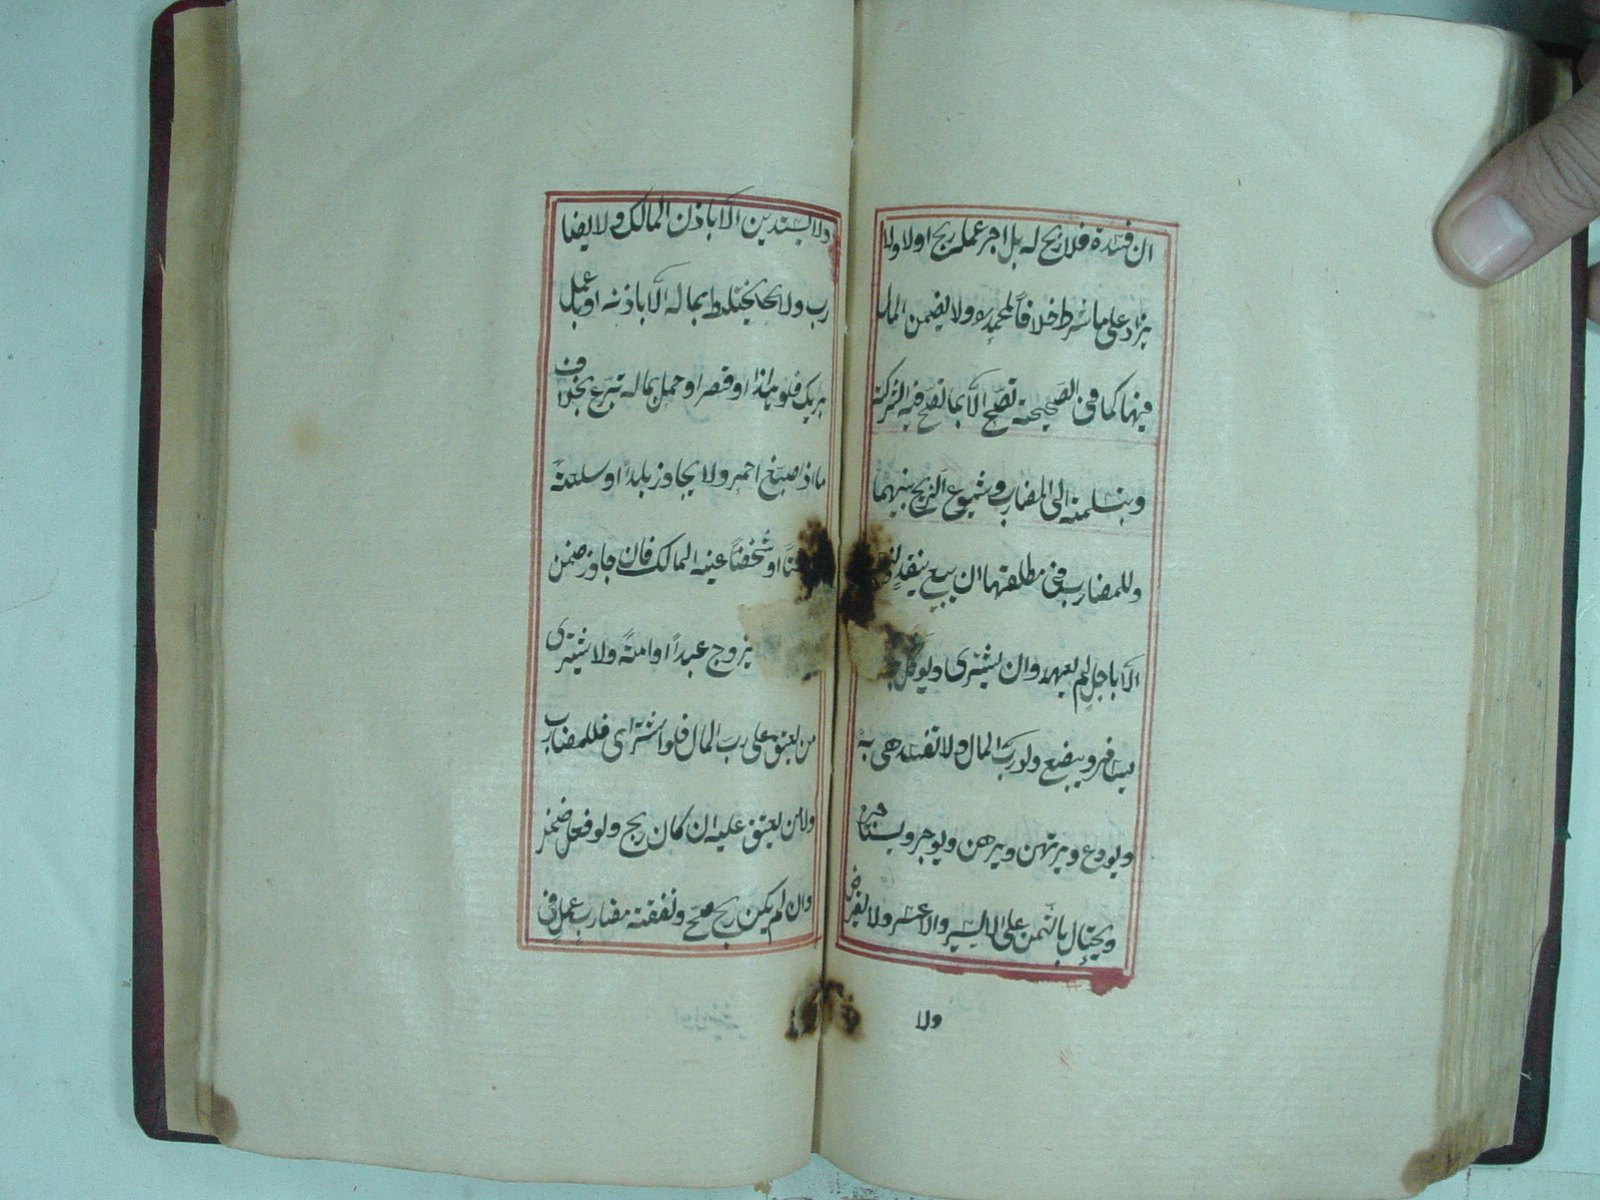 ان فسدة فلا ربح له بل اجر عمله ربح اولا ولا
يزاد على ما شرط خلافاً لمحمد ره ولا يضمن المال
فيها كما فى الصحيحة تصح الّا بما تصح فيه الشركة
وبتسلمه الى المضارب وشيوع الربح بينهما
وللمضارب فى مطلقها ان يبيع بنقدٍ
الّا باجل لم يعهد وان يشترى ويوكل
يسافر ويبضع ولو ربّ المال ولا تفسد هى به
ويودع ويرتهن ويرهن ويوجر ويستاجر
ويحتال بالثمن على الايسر والاعسر ولا يقرض
ولا
ولا يستدين الّا باذن المالك ولا يضا
رب ولا يختلط بماله الّا باذنه او باعمل
برايك فلو او قصر او حمل بماله تبرع بخلاف
ما اذا صبغ احمر ولا يجاوز بلداً او سلعةً
او شخصاً عينه المالك فان جاوز ضمن
يزوج عبداً او امةً ولا يشترى
من يعتق على ربّ المال فلو اشترى فللمضارب
ولا من يعتق عليه ان كان ربح ولو فعل ضمن
وان لم يكن ربح صح ونفقة مضارب عمل فى